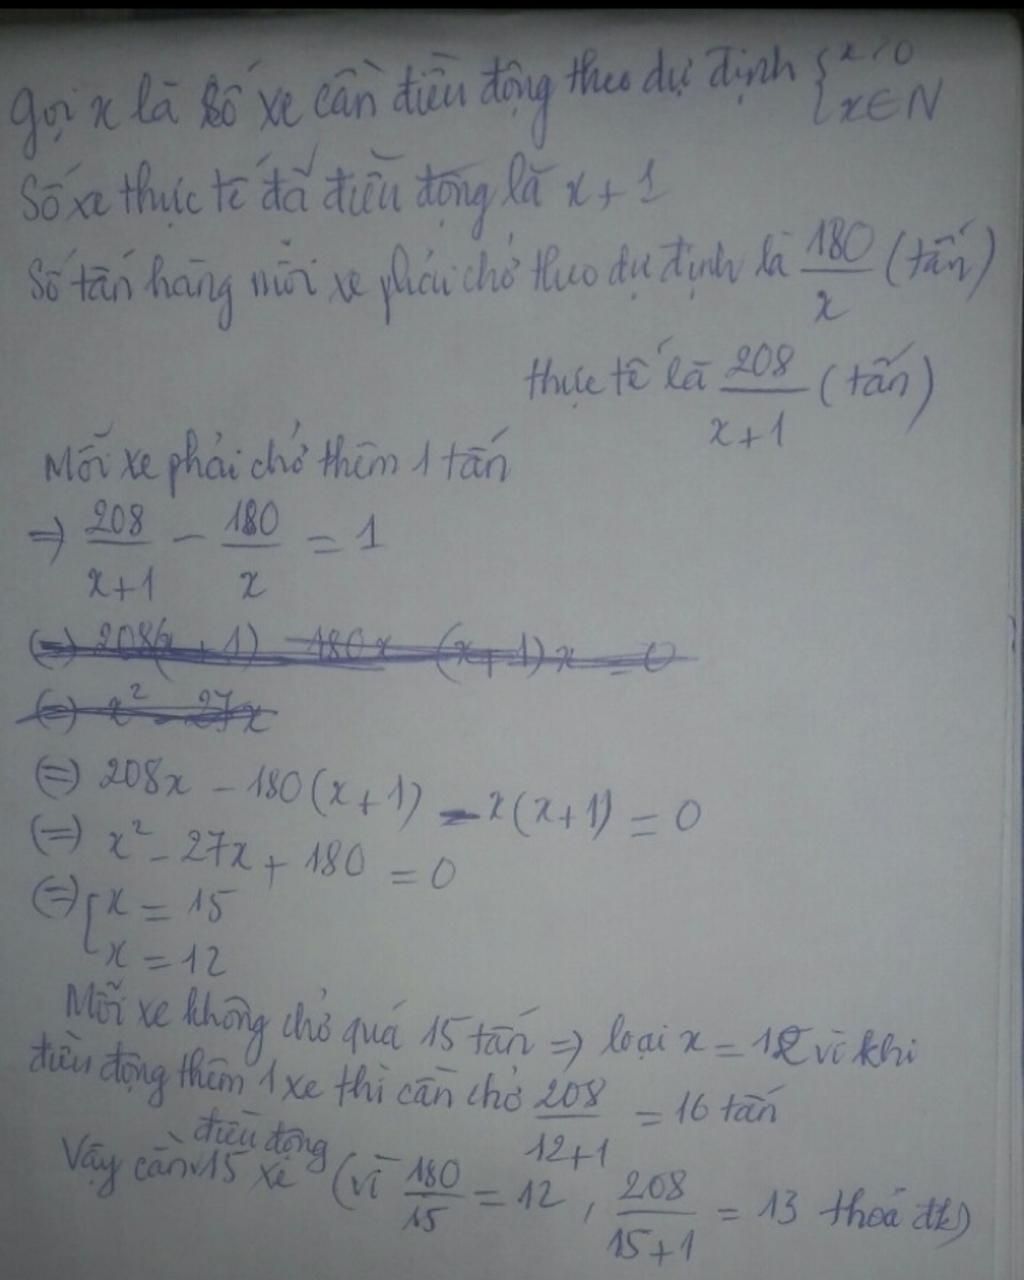 Gọi x là số xe cần điều động theo dự định { x > 0 x ∈ N
Số xe thực tế đã điều động là x + 1
Số tấn hàng mỗi xe phải chở theo dự định là 180/x (tấn)
thực tế là 208/(x+1) (tấn)
Mỗi xe phải chở thêm 1 tấn
⇒ 208/(x+1) - 180/x = 1
(=) 208(x+1) - 180x - (x+1)x = 0
(=) x² - 27x
(=) 208x - 180(x+1) - x(x+1) = 0
(=) x² - 27x + 180 = 0
(=) [ x = 15
x = 12
Mỗi xe không chở quá 15 tấn ⇒ loại x = 12 vì khi
điều động thêm 1 xe thì cần chở 208/(12+1) = 16 tấn
Vậy cần điều động 15 xe (vì 180/15 = 12, 208/(15+1) = 13 thoả đk)